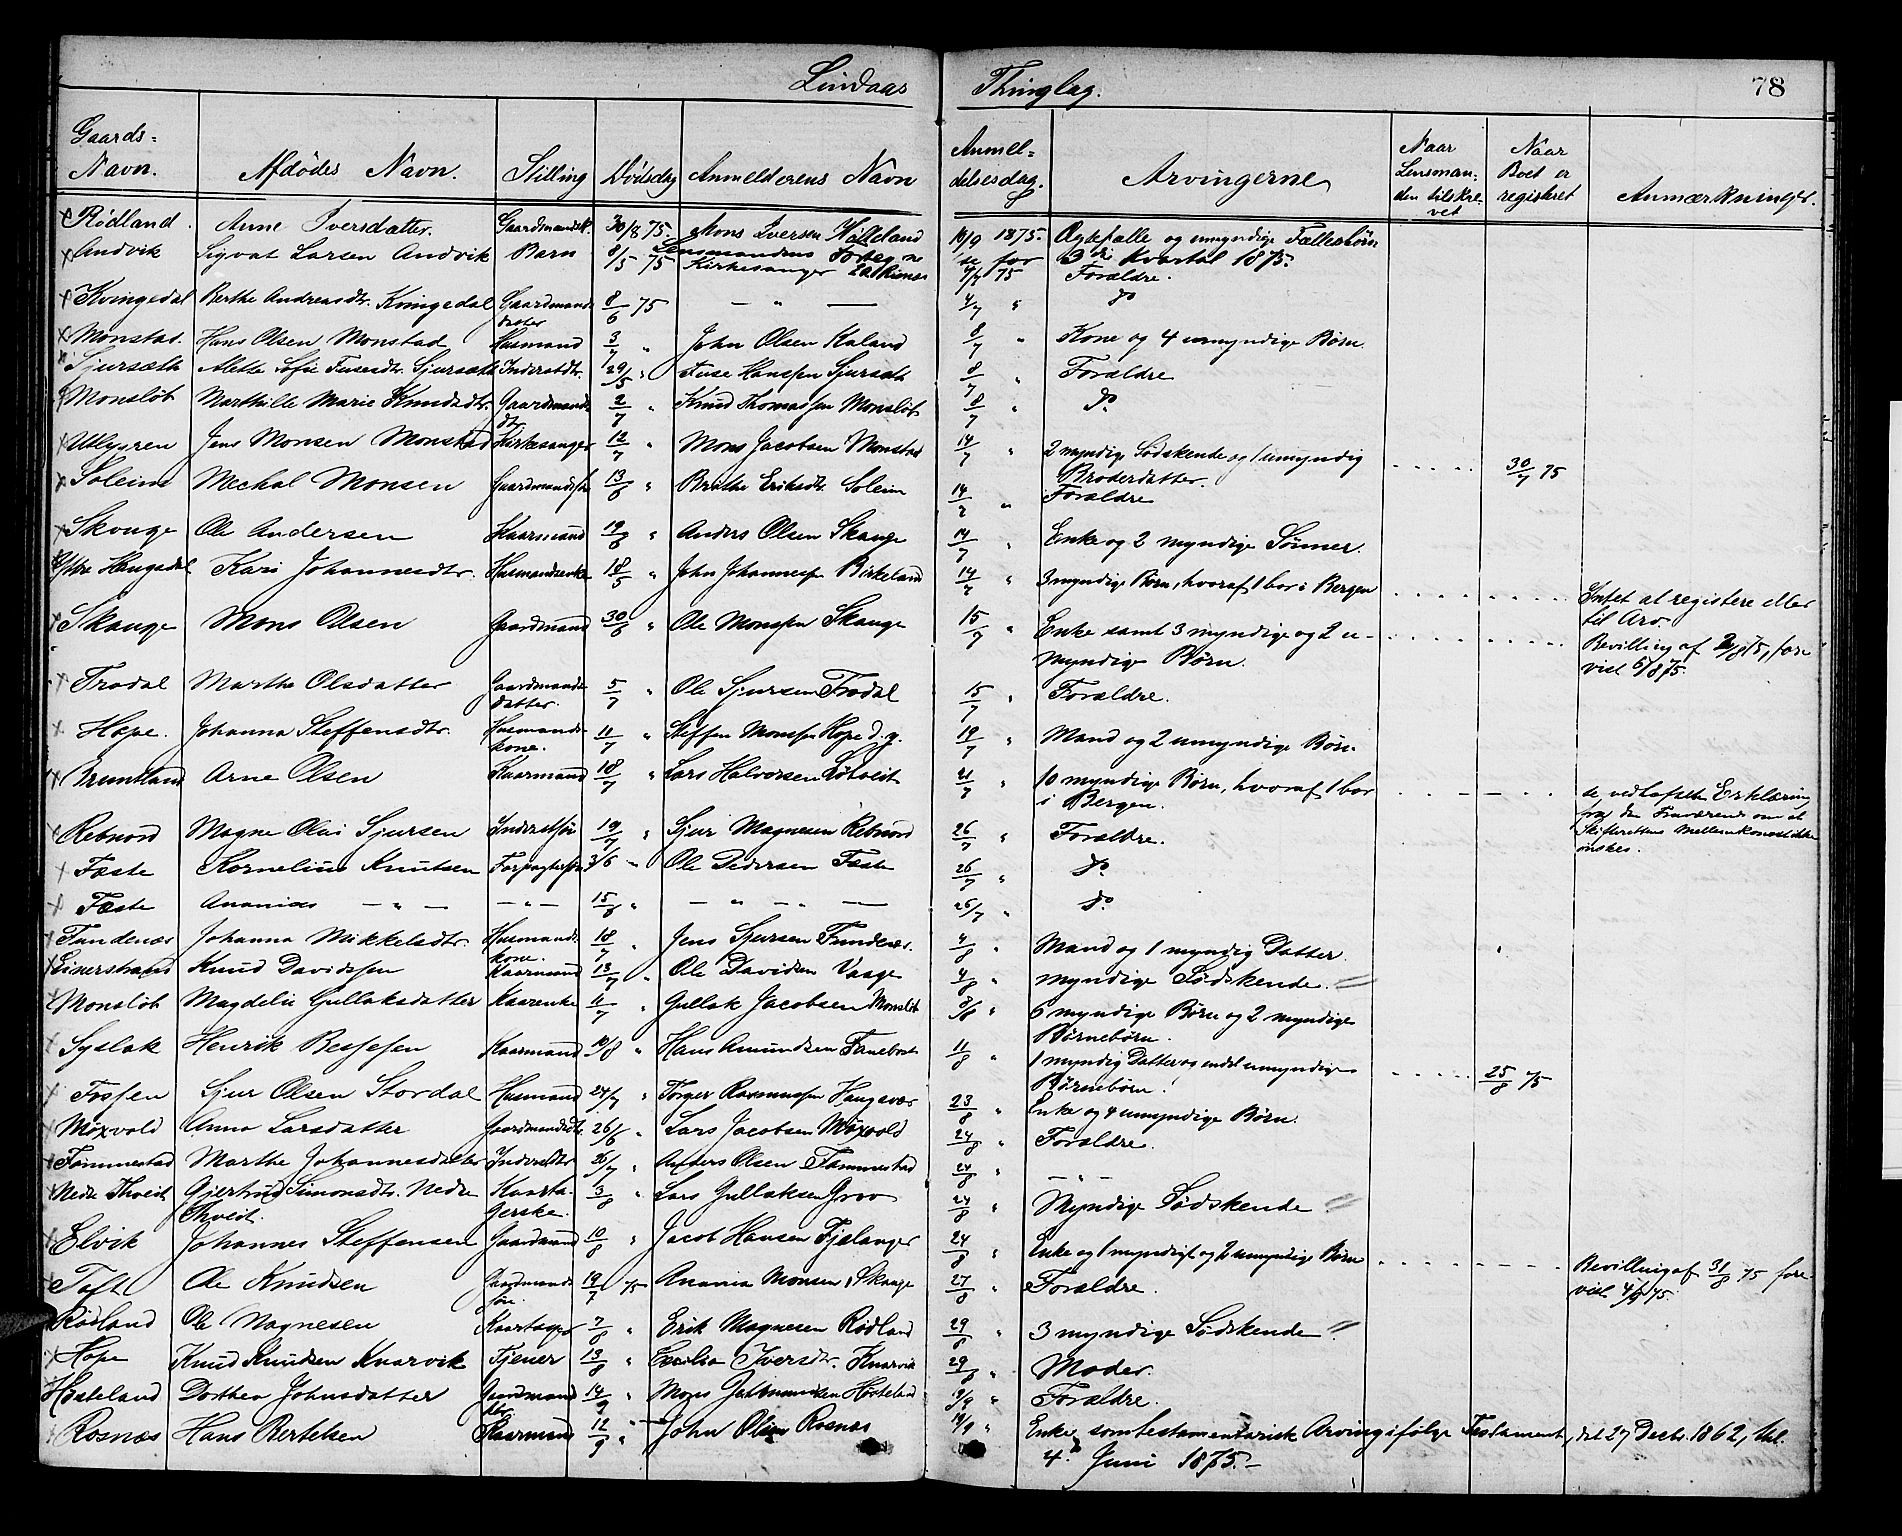 Lindaas Thinglag. 78
Gaards= Navn. Afdødes Navn. Stilling Dødsdag Anmelderens Navn Anmel= delsesdag. Arvingerne Naar Lensman= den tilskre= vet Naar Boet er registeret Anmærkninger.
x Rødland. Anne Iversdatter. 30/8 75. Mons Iversen 10/9 1875. Ægtefælle og umyndige Fællesbørn
se for 3die Kvartal 1875.
x Andvik Sigvat Larsen Andvik Barn 8/5 75 Kirkesanger 4/7 75 Forældre.
x Kvingedal Berthe Andreasdtr. Kvingedal Gaardmands datter 8/6 75 — " — 4/7 " do
x Monstad. Hans Olsen Monstad Husmand 3/7 " John Olsen Kaland 8/7 " Kone og 4 umyndige Børn.
x Sjursæth Alette Sofie Tusesdtr. Sjursæth Inderstdtr. 29/5 " Tuse Hansen Sjursæth 8/7 " Forældre
x Monsløb Marthille Marie Knudsdtr. Gaardmands dt. 2/7 " Knud Thomassen Monsløb 8/7 " do.
x Utbyren Jens Monsen Monstad Kirkesanger 12/7 " Mons Jacobsen Monstad 14/7 " 2 myndige Sødskende og 1 umyndig Broderdatter. 30/7 75
x Soleim Mechal Monsen 13/6 " Brithe Eriksdt. Soleim 14/7 " Forældre
x Skouge Ole Andersen Kaarmand 19/6 " Anders Olsen Skauge 14/7 " Enke og 2 myndige Sønner.
Haugsdal Kari Johannesdtr. Husmandsenke 18/5 " John Johannessen Birkeland 14/7 " 3 myndige Børn, hvoraf 1 bor i Bergen Intet at registere eller til Arv
x Skauge Mons Olsen Gaardmand 30/6 " Ole Monsen Skauge 15/7 " Enke samt 3 myndige og 2 u= myndige Børn. Bevilling af 75, fore= vist 6/8 75.
x Trodal Marthe Olsdatter Gaardmands datter. 5/7 " Ole Sjursen Trodal 15/7 " Forældre.
x Hope. Johanna Steffensdtr. Husmands= kone. 11/7 " Steffen Monsen Hope d.y. 19/7 " Mand og 2 umyndige Børn.
x Bruntland Arne Olsen Kaarmand 18/7 " Lars Halvorsen 21/7 " 10 myndige Børn, hvoraf 1 bor i Bergen. se vedhæftede Erklæring fra den Fraværende om at Skifterettens Mellemkomst ikke ønskes.
x Rebnord Magne Olai Sjursen Inderstsøn 19/7 " Sjur Magnesen Rebnord 26/7 " Forældre.
x Fæste Kornelius Knutsen 3/6 " Ole Pedersen Fæste 26/7 " do.
x Fæste Ananias — " — — " — 15/6 " — " — " — 26/7 " do.
x Fundenæs Johanna Mikkelsdtr. Husmands kone. 18/7 " Jens Sjursen Fundenæs. 4/8 " Mand og 1 myndig Datter.
x Einerstrand Knud Davidsen Kaarmand 13/7 " Ole Davidsen Vaage 4/8 " myndige Sødskende.
x Monsløb Magdeli Gullaksdatter Kaarenke 11/7 " Gullak Jacobsen Monsløb 8/8 " 6 myndige Børn og 2 myndige Børnebørn.
x Syslak Henrik Kaarmand 10/8 " Hans Amundsen Fanebost 11/8 " 1 myndig Datter og endel umyndige Børnebørn. 25/8 75
x Fossen Sjur Olsen Stordal Husmand 24/7 " Torger Rasmussen Haugsvær 23/8 " Enke og 4 umyndige Børn.
x Moxvold Anna Larsdatter Gaardmandsdt. 26/6 " Lars Jacobsen Moxvold 24/8 " Forældre.
x Fammestad Marthe Johannesdatter Inderstdtr 26/7 " Anders Olsen Fammestad 24/8 " — " —
x Nedre Thveit Gjertrud Simonsdtr. Nedre Thveit. Kaarta= gerske. 3/8 " Lars Gullaksen Groo 24/8 " Myndige Sødskende
x Elvik Johannes Steffensen Gaardmand 10/8 " Jacob Hansen Fjelanger 24/8 " Enke og 1 myndigt og 2 umyndige Børn Bevilling af 31/8 75 fore= vist 4/9 75.
Toft Ole Knudsen Gaardmands søn. 19/7 75 Anania Monsen Skauge 27/8 " Forældre.
Rødland Ole Magnesen Kaartager 7/8 " Erik Magnesen Rødland 29/8 " 3 myndige Sødskende
x Hope Knud Knudsen Knarvik Tjener 13/8 " Iversdtr. Knarvik 29/8 " Moder.
x Hosteland Dorthea Johnsdatter Gaardmand dtr 14/9 " Mons Hosteland Forældre.
x Rosnæs Hans Bertelsen Kaarmand 12/9 " John Olsen Rosnæs 14/9 " Enke som testamentarisk Arving ifølge Testament, dat 27 Decbr. 1862, thl. 4de Juni 1875.